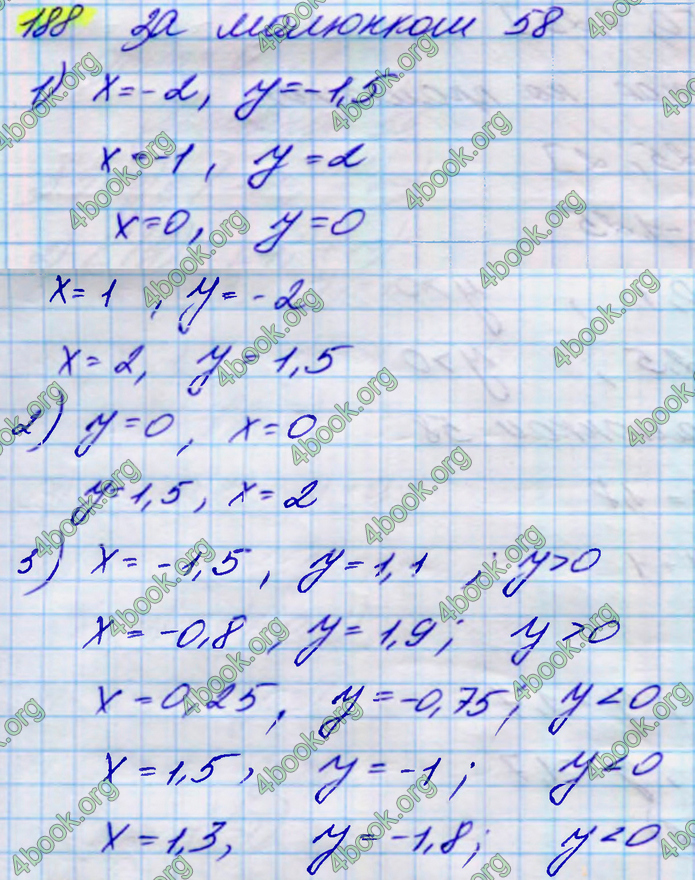 188 За малюнком 58
1) x=-2, y=-1,5
x=-1, y=2
x=0, y=0
x=1, y=-2
x=2, y=1,5
2) y=0, x=0
y=1,5, x=2
3) x=-1,5, y=1,1; y>0
x=-0,8, y=1,9; y>0
x=0,25, y=-0,75; y<0
x=1,5, y=-1; y<0
x=1,3, y=-1,8; y<0
4book.org